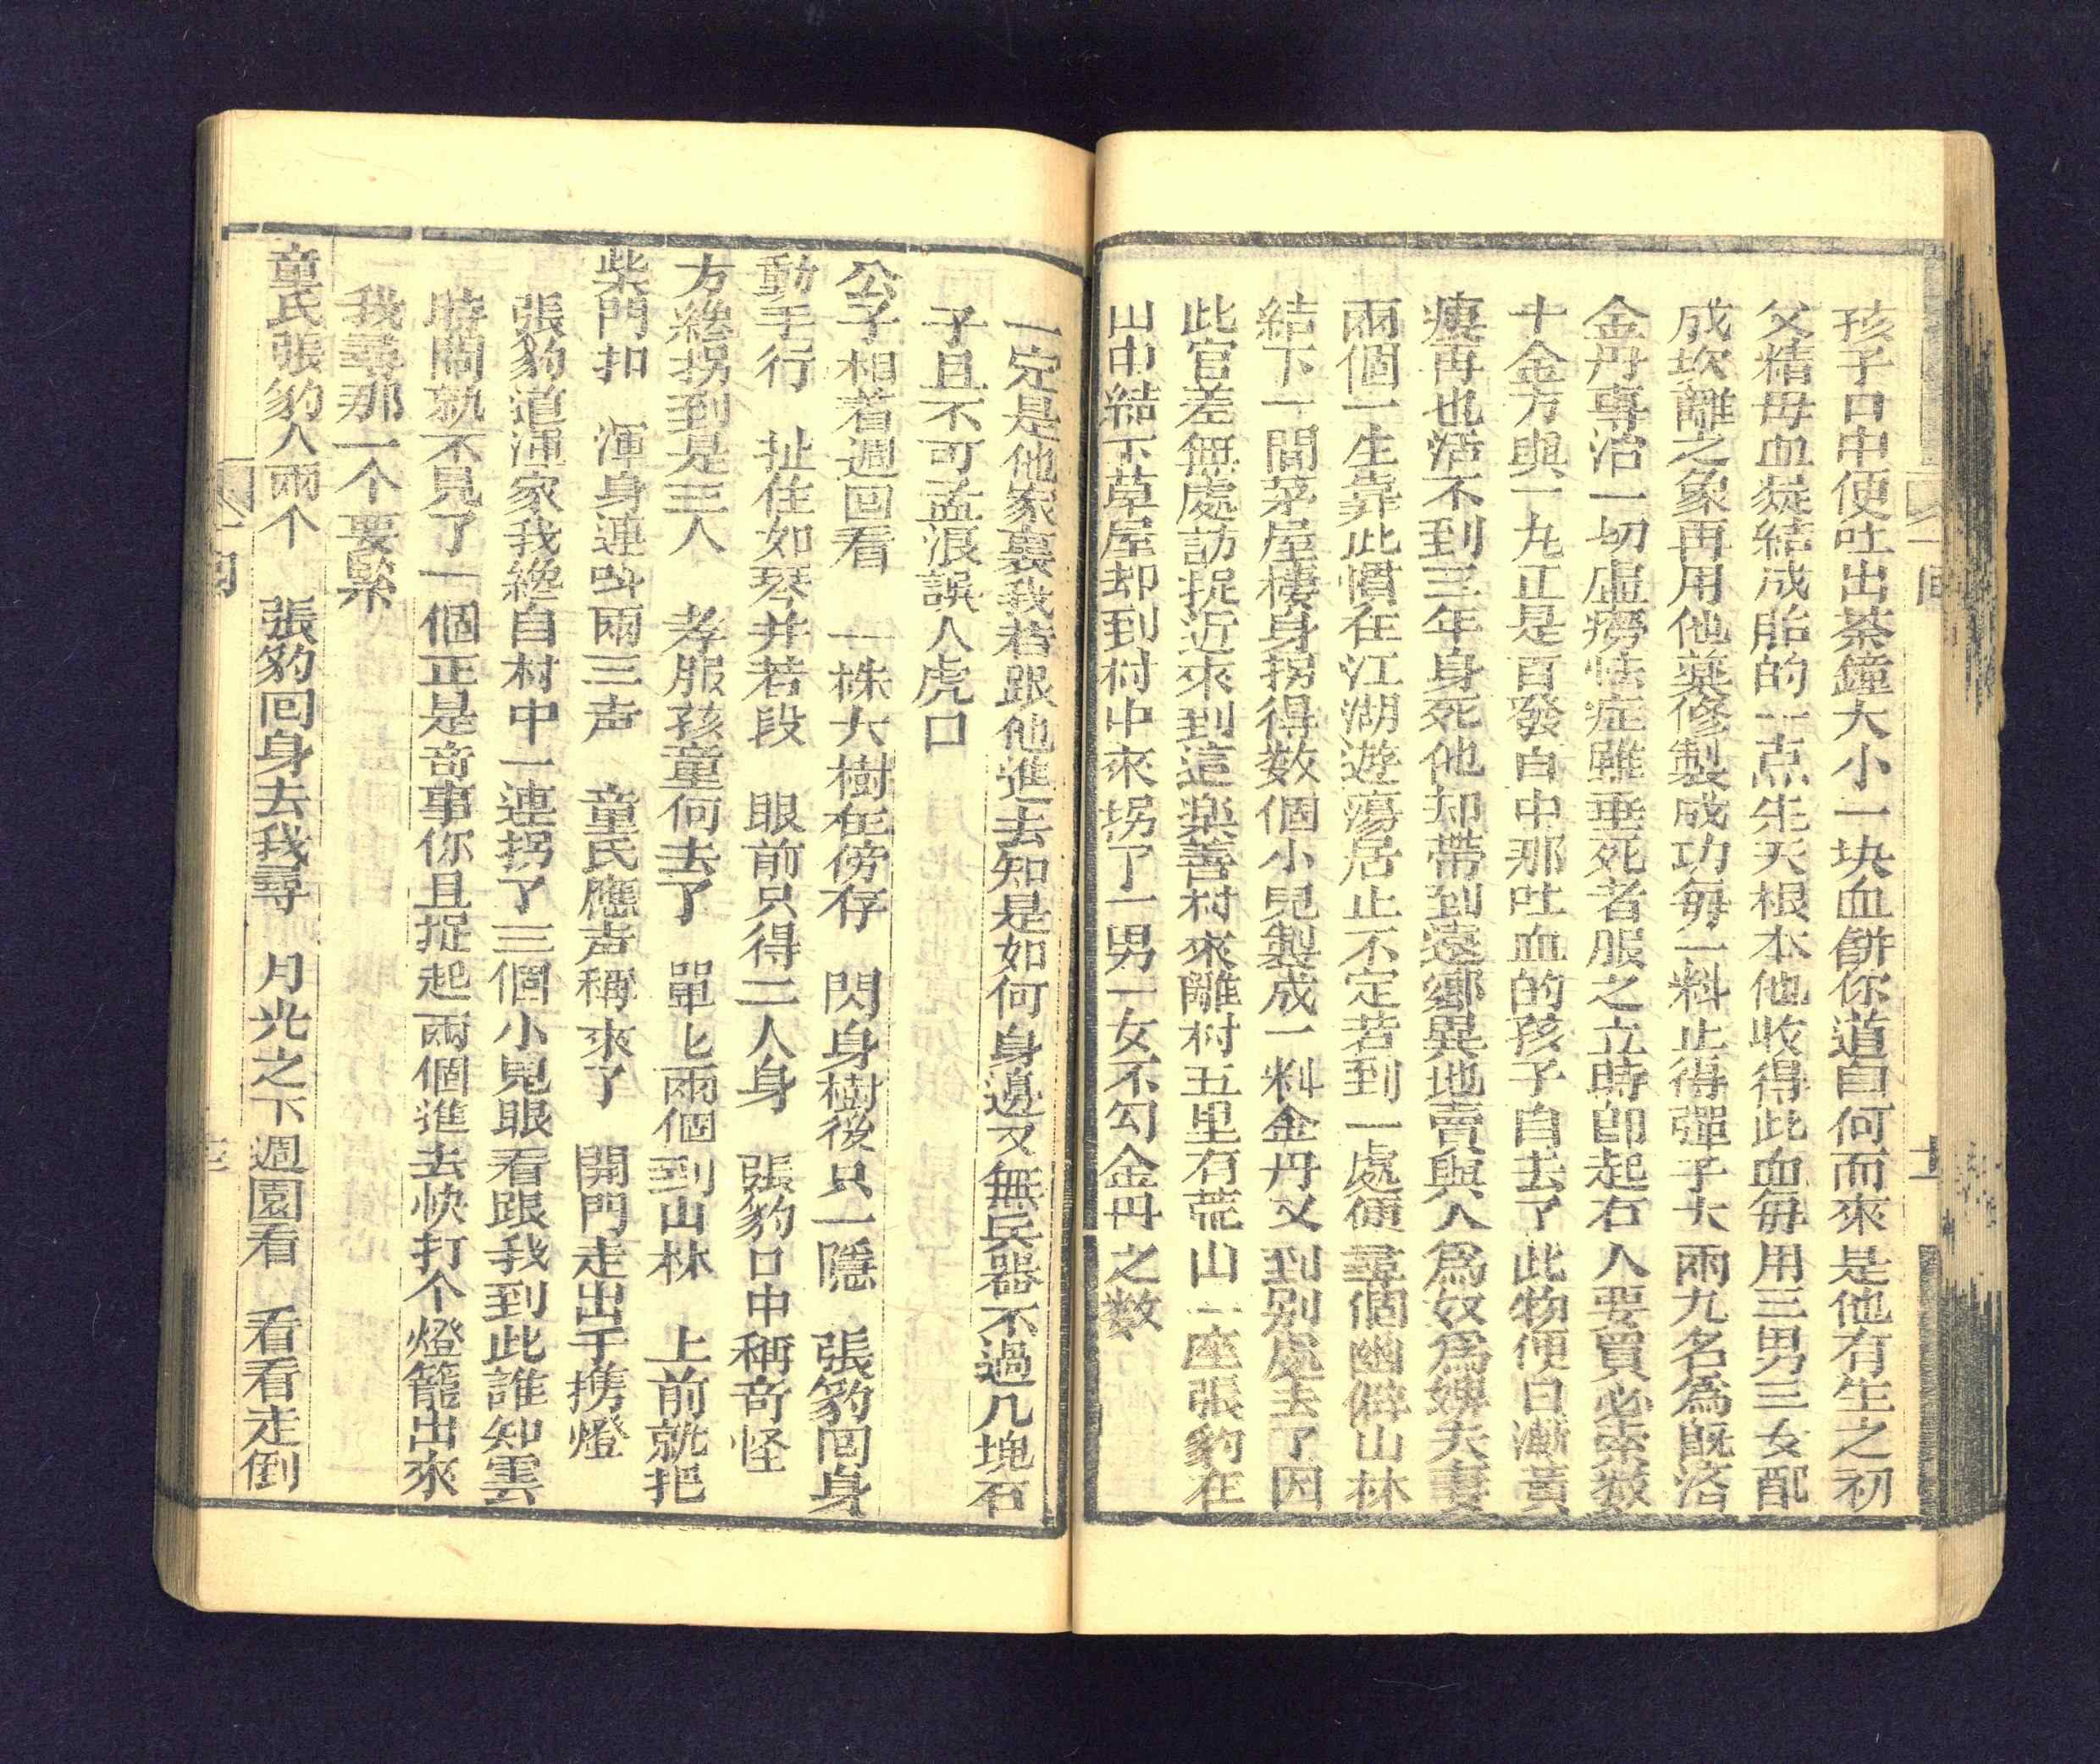 孩子口中便吐出茶鐘大小一块血餅你道自何而來是他有生之初
父精毋血凝結成胎的一点先天根本他收得此血毎用三男三女配
成坎離之象再用他藥修製成功毎一料止得彈子大兩九名爲既済
金丹專治一切虛癆怯症雖垂死者服之立時卽起右人要買必索数
十金方與一九正是百發百中那吐血的孩子自去了此物便日漸黃
瘦再也活不到三年身死他却帶到遠鄉異地賣與人爲奴爲婢夫妻
兩個一生靠此慣在江湖遊蕩居止不定若到一處便尋個幽僻山林
結下一間茅屋棲身拐得数個小兒製成一料金丹又到别處去了因
此官差無處訪捉近來到這楽善村來離村五里有荒山一座張豹在
山中結下草屋却到村中來拐了一男一女不勾金丹之数
一定是他家裏我若跟他進去知是如何身邊又無兵器不過几塊石
子且不可孟浪誤人虎口
公子相着週回看 一株大樹在傍存 閃身樹後只一隱 張豹囘身
動手行 扯住如琴井若段 眼前只得二人身 張豹口中稱竒怪
方纔拐到是三人 孝服孩童何去了 單匕兩個到山林 上前就把
柴門扣 渾身連呌兩三声 童氏應声稱來了 開門走出手擕燈
張豹道渾家我纔自村中一連拐了三個小兒眼看跟我到此誰知霎
時間就不見了一個正是竒事你且捉起兩個進去快打个燈籠出來
我尋那一个要緊
童氏張豹人兩个 張豹回身去我尋 月光之下週圍看 看看走倒